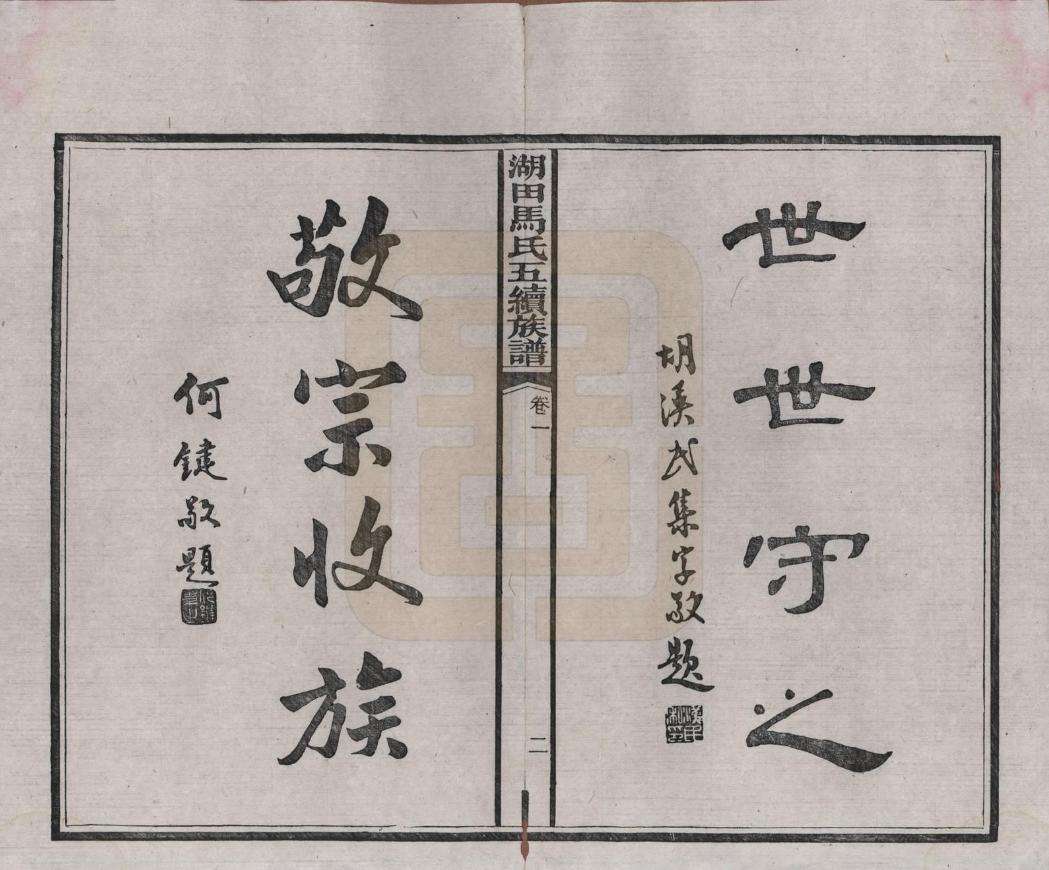 世世守之
胡漢民集字敬題
湖田馬氏五續族譜
卷一
二
敬宗收族
何鍵敬題